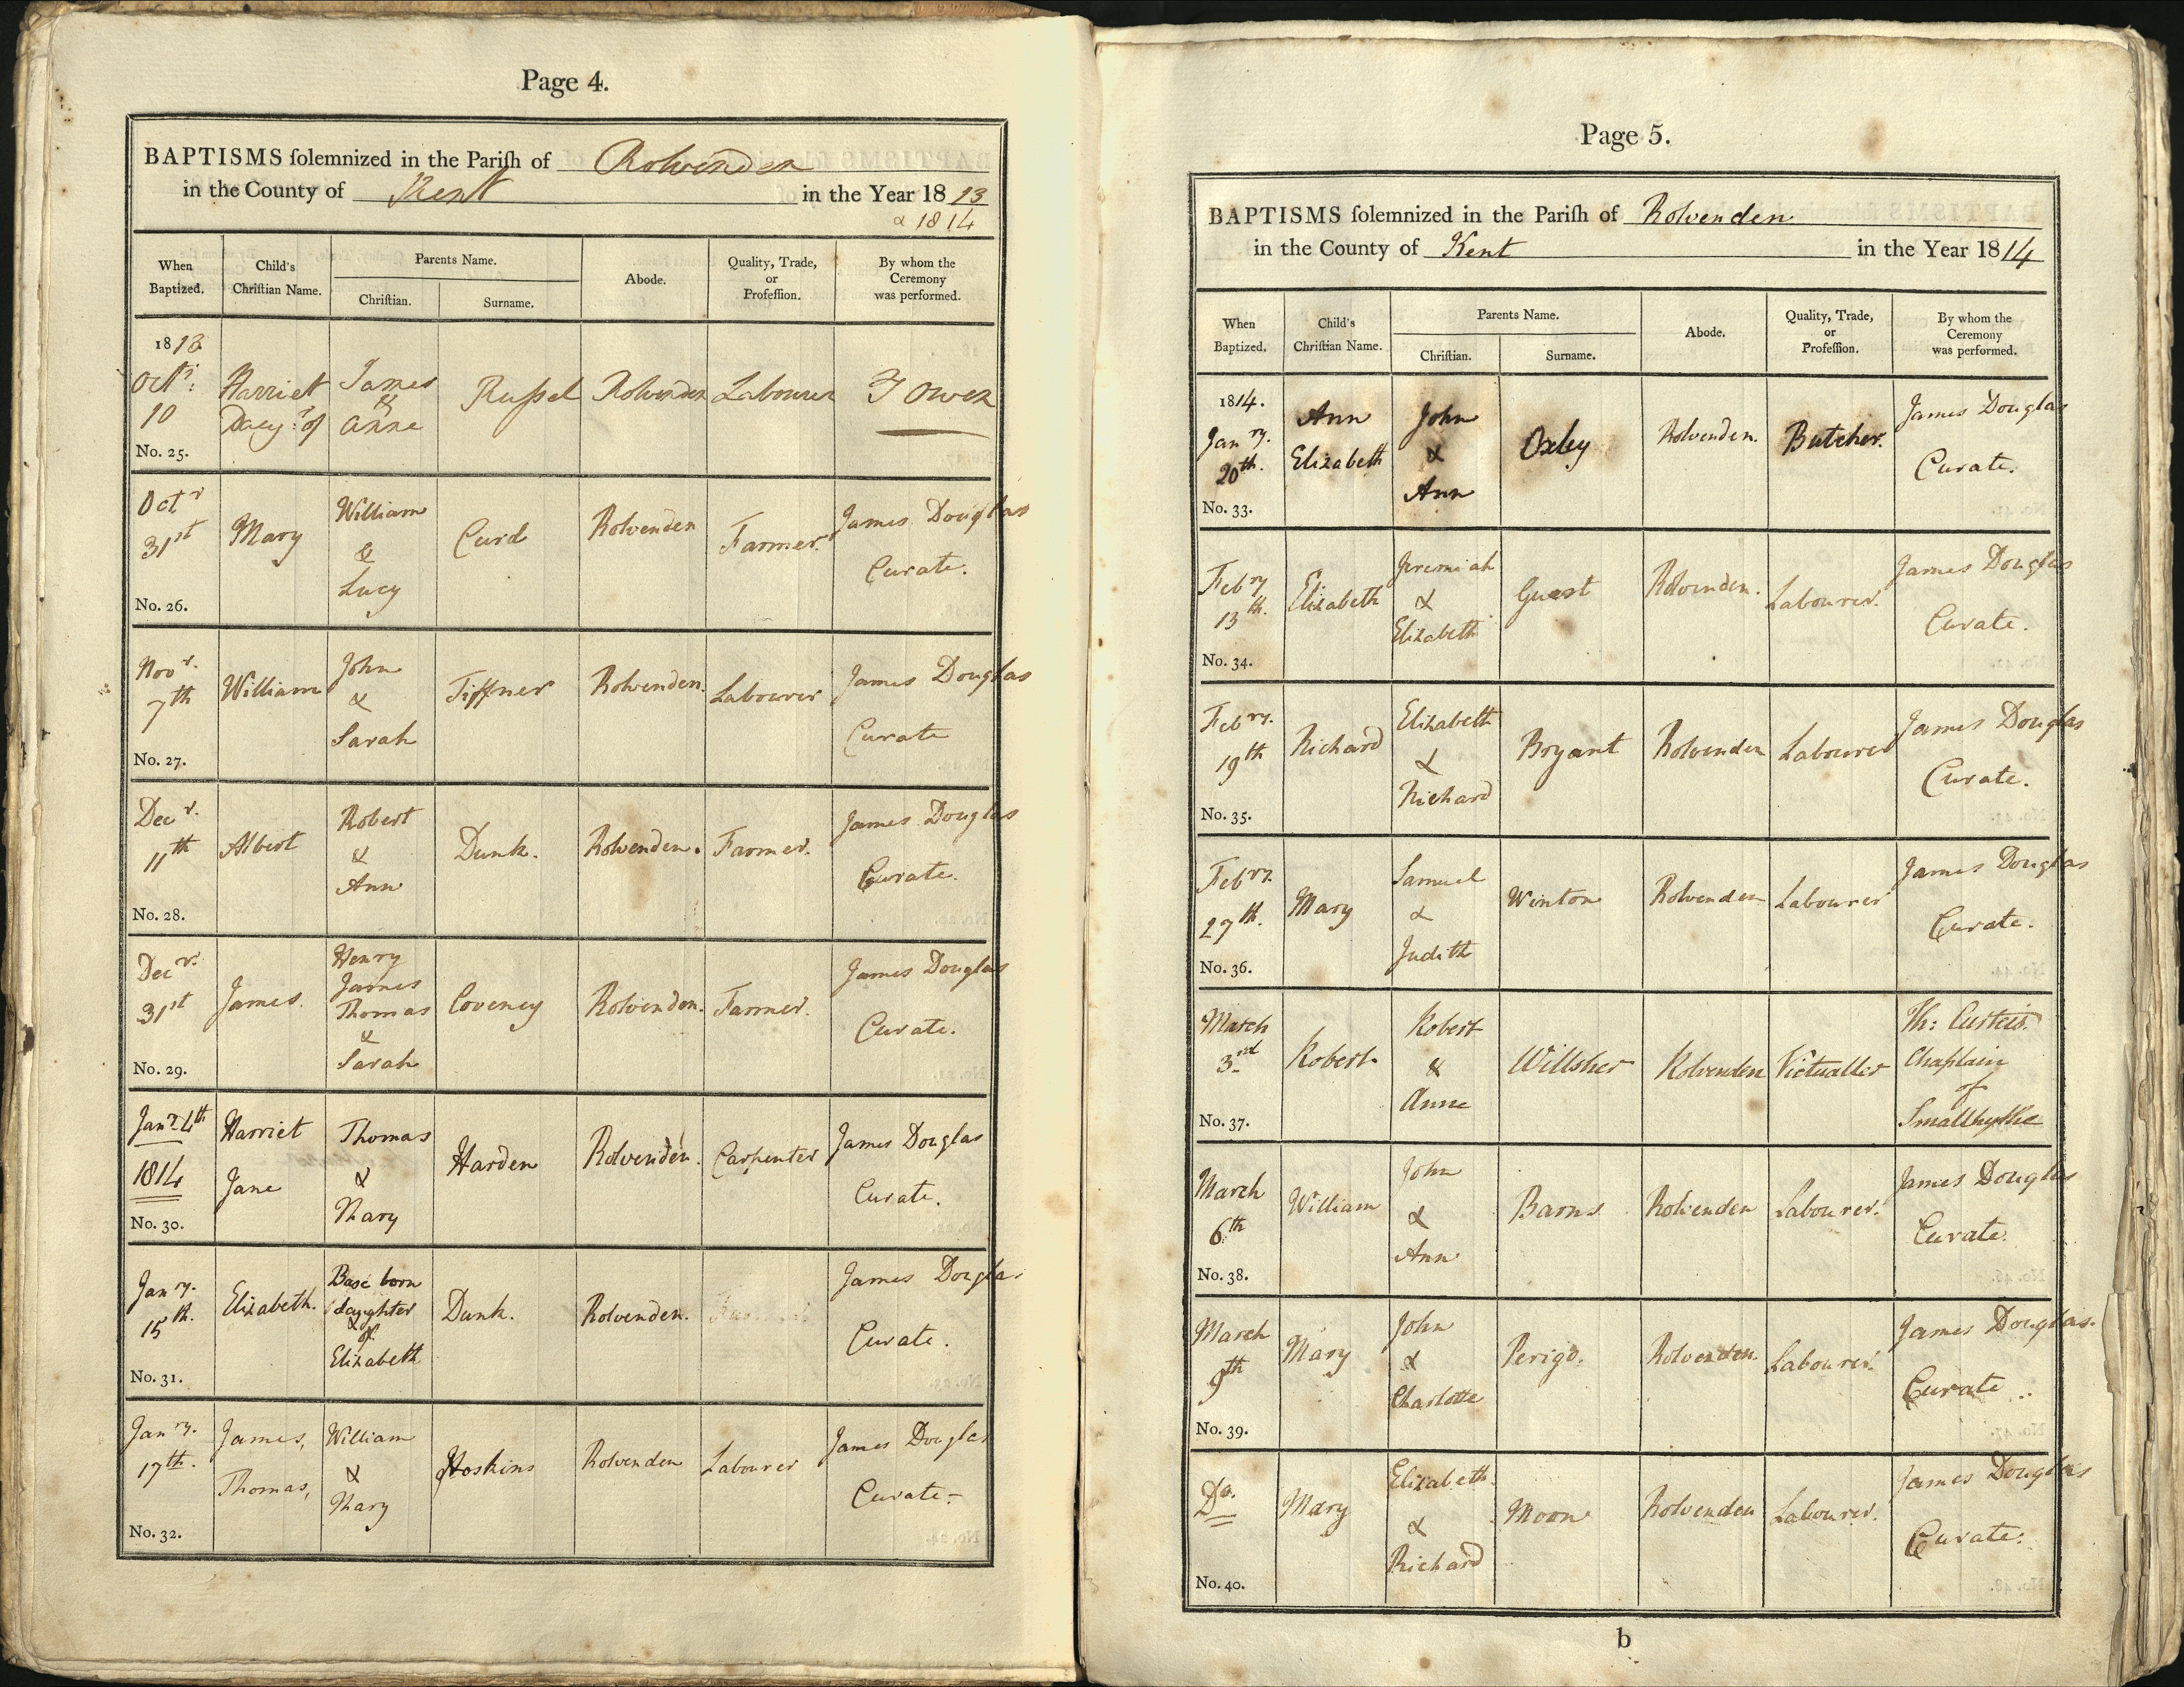 Page 4.
BAPTISMS ſolemnized in the Pariſh of Rolvenden
in the County of Kent in the Year 1813
& 1814
When Baptized.
Child's Chriſtian Name.
Parents Name.
Chriſtian.
Surname.
Abode.
Quality, Trade, or Profeſſion.
By whom the Ceremony was performed.
1813
Octr: 10
No. 25.
Harriet
Daugr of
James
&
Anne
Ruſsel
Rolvenden
Labourer
T Owen
Octr
31st
No. 26.
Mary
William
&
Lucy
Curd
Rolvenden
Farmer.
James Douglas
Curate.
Novr.
7th
No. 27.
William
John
&
Sarah
Tiffner
Rolvenden.
Labourer
James Douglas
Curate
Decr.
11th
No. 28.
Albert
Robert
&
Ann
Dunk.
Rolvenden.
Farmer.
James Douglas
Curate.
Decr.
31st
No. 29.
James.
Henry
James
Thomas
&
Sarah
Coveney
Rolvenden.
Farmer.
James Douglas
Curate.
Jany 4th
1814
No. 30.
Harriet
Jane
Thomas
&
Mary
Harden
Rolvenden.
Carpenter
James Douglas
Curate.
Janry.
15th.
No. 31.
Elizabeth.
Base born
daughter
&
of
Elizabeth
Dunk.
Rolvenden.
James Douglas
Curate.
Janry.
17th.
No. 32.
James,
Thomas,
William
&
Mary
Hoskins
Rolvenden
Labourer
James Douglas
Curate.
Page 5.
BAPTISMS ſolemnized in the Pariſh of Rolvenden
in the County of Kent in the Year 1814
When Baptized.
Child's Chriſtian Name.
Parents Name.
Chriſtian.
Surname.
Abode.
Quality, Trade, or Profeſſion.
By whom the Ceremony was performed.
1814.
Janry.
20th.
No. 33.
Ann
Elizabeth
John
&
Ann
Oxley
Rolvenden.
Butcher.
James Douglas
Curate.
Febry
13th.
No. 34.
Elizabeth
Jeremiah
&
Elizabeth
Guest
Rolvenden.
Labourer.
James Douglas
Curate.
Febry.
19th
No. 35.
Richard
Elizabeth
&
Richard
Bryant
Rolvenden
Labourer
James Douglas
Curate.
Febry.
27th.
No. 36.
Mary
Samuel
&
Judith
Winton
Rolvenden
Labourer
James Douglas
Curate.
March
3rd
No. 37.
Robert
Robert
&
Anne
Willsher
Rolvenden
Victualler
Th: Curteis
Chaplain
of
Smallhythe
March
6th
No. 38.
William
John
&
Ann
Barns
Rolvenden
Labourer.
James Douglas
Curate.
March
9th
No. 39.
Mary
John
&
Charlotte
Perigo.
Rolvenden.
Labourer.
James Douglas.
Curate..
Do.
No. 40.
Mary
Elizabeth
&
Richard
Moon
Rolvenden
Labourer.
James Douglas
Curate.
b